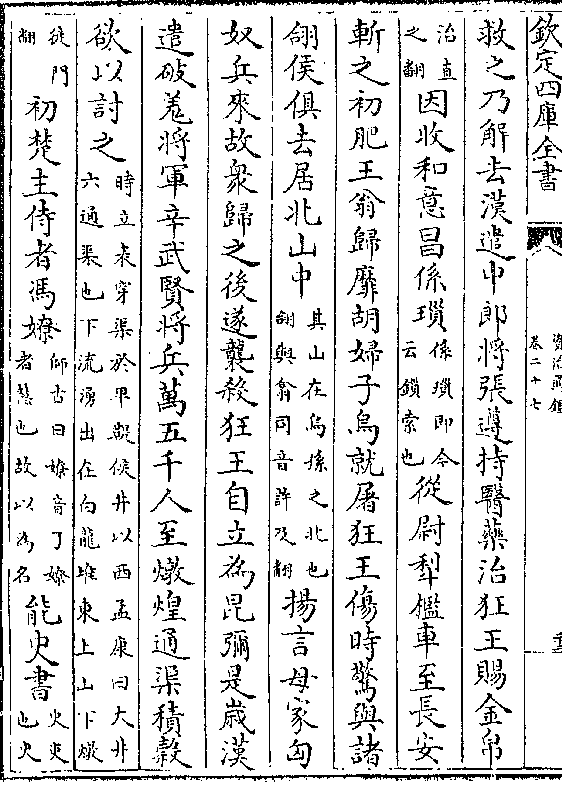 欽定四庫全書
資治通鑑
卷二十七
十三
救之乃解去漢遣中郎將張遵持醫藥治狂王賜金帛
治直
之翻
因收和意昌係瑣
係瑣即今
云鎖索也
從尉犁檻車至長安
斬之初肥王翁歸靡胡婦子烏就屠狂王傷時驚與諸
翖侯俱去居北山中
其山在烏孫之北也
翖與翕同音許及翻
揚言母家匈
奴兵來故衆歸之後遂襲殺狂王自立為昆彌是嵗漢
遣破羌將軍辛武賢將兵萬五千人至燉煌通渠積穀
欲以討之
時立表穿渠於卑鞮侯井以西孟康曰大井
六通渠也下流湧出在白龍堆東上山下燉
徒門
翻
初楚主侍者馮嫽
師古曰嫽音了嫽
者慧也故以為名
能史書
史吏
也史